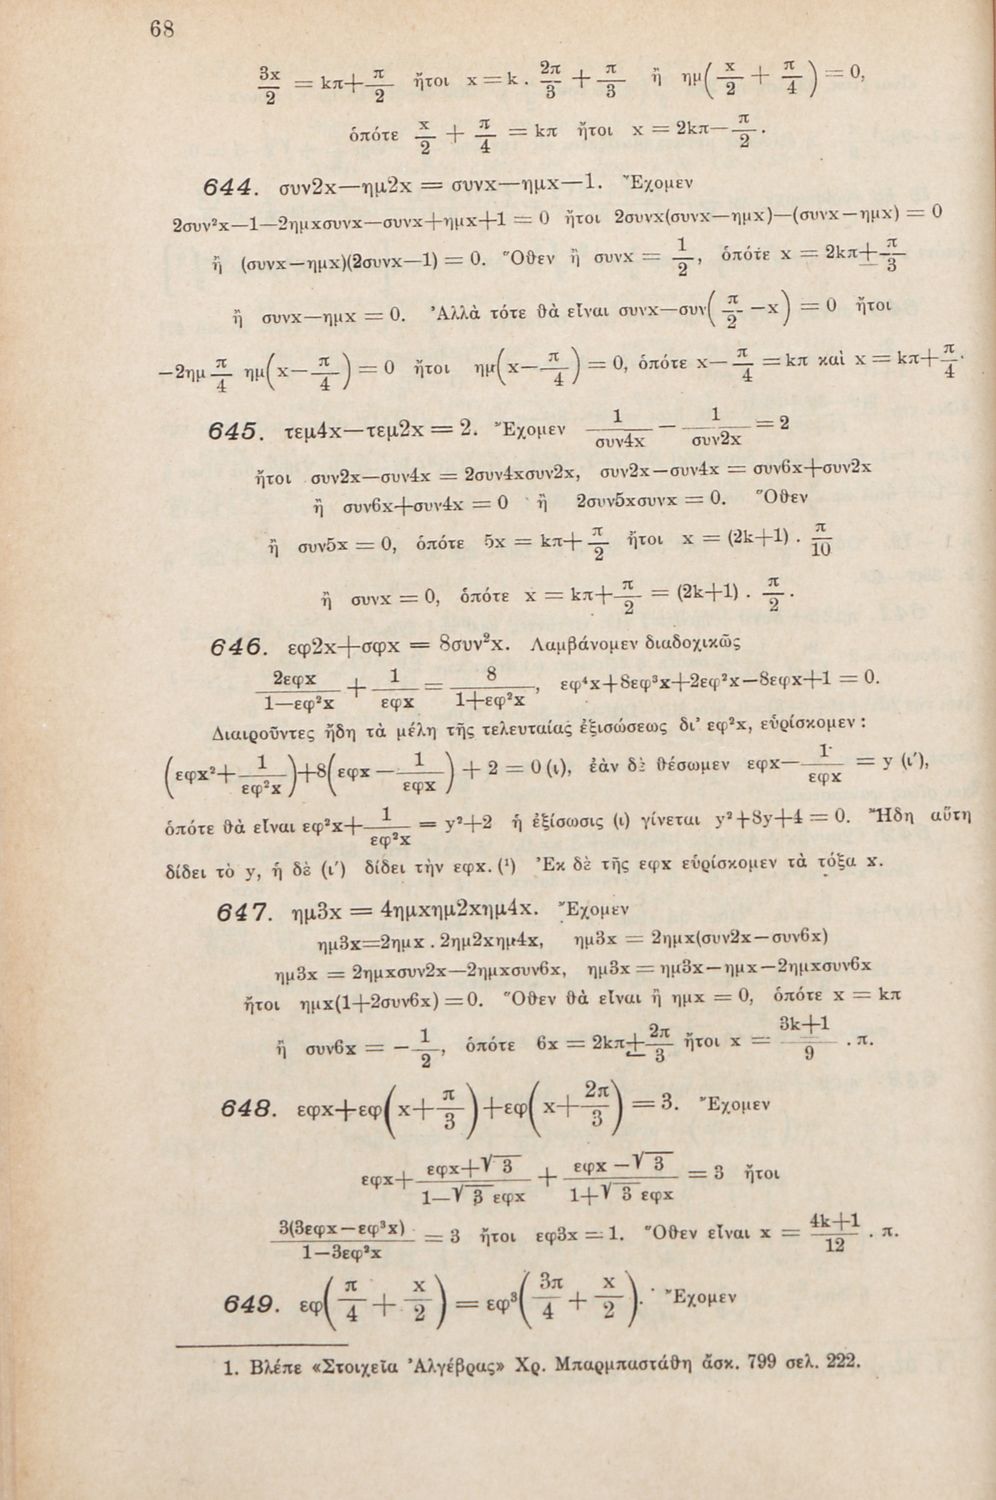 68
3x/2 = kπ+π/2 ἤτοι x = k . 2π/3 + π/3 ἢ ημ(x/2 + π/4) = 0,
ὁπότε x/2 + π/4 = kπ ἤτοι x = 2kπ—π/2.
644. συν2x—ημ2x = συνx—ημx—1. Ἔχομεν
2συν²x—1—2ημxσυνx—συνx+ημx+1 = 0 ἤτοι 2συνx(συνx—ημx)—(συνx—ημx) = 0
ἢ (συνx—ημx)(2συνx—1) = 0. Ὅθεν ἢ συνx = 1/2, ὁπότε x = 2kπ±π/3
ἢ συνx—ημx = 0. Ἀλλὰ τότε θὰ εἶναι συνx—συν(π/2 —x) = 0 ἤτοι
—2ημ π/4 ημ(x—π/4) = 0 ἤτοι ημ(x—π/4) = 0, ὁπότε x—π/4 = kπ καὶ x = kπ+π/4.
645. τεμ4x—τεμ2x = 2. Ἔχομεν 1/συν4x — 1/συν2x = 2
ἤτοι συν2x—συν4x = 2συν4xσυν2x, συν2x—συν4x = συν6x+συν2x
ἢ συν6x+συν4x = 0 ἢ 2συν5xσυνx = 0. Ὅθεν
ἢ συν5x = 0, ὁπότε 5x = kπ+π/2 ἤτοι x = (2k+1) . π/10
ἢ συνx = 0, ὁπότε x = kπ+π/2 = (2k+1) . π/2.
646. εφ2x+σφx = 8συν²x. Λαμβάνομεν διαδοχικῶς
2εφx/1—εφ²x + 1/εφx = 8/1+εφ²x, εφ⁴x+8εφ³x+2εφ²x—8εφx+1 = 0.
Διαιροῦντες ἤδη τὰ μέλη τῆς τελευταίας ἐξισώσεως δι' εφ²x, εὑρίσκομεν :
(εφx²+1/εφ²x)+8(εφx — 1/εφx) + 2 = 0 (ι), ἐὰν δὲ θέσωμεν εφx—1/εφx = y (ι'),
ὁπότε θὰ εἶναι εφ²x+1/εφ²x = y²+2 ἡ ἐξίσωσις (ι) γίνεται y²+8y+4 = 0. Ἤδη αὕτη
δίδει τὸ y, ἡ δὲ (ι') δίδει τὴν εφx. (¹) Ἐκ δὲ τῆς εφx εὑρίσκομεν τὰ τόξα x.
647. ημ3x = 4ημxημ2xημ4x. Ἔχομεν
ημ3x=2ημx . 2ημ2xημ4x, ημ3x = 2ημx(συν2x—συν6x)
ημ3x = 2ημxσυν2x—2ημxσυν6x, ημ3x = ημ3x—ημx—2ημxσυν6x
ἤτοι ημx(1+2συν6x) = 0. Ὅθεν θὰ εἶναι ἢ ημx = 0, ὁπότε x = kπ
ἢ συν6x = —1/2, ὁπότε 6x = 2kπ±2π/3 ἤτοι x = 3k+1/9 . π.
648. εφx+εφ(x+π/3)+εφ(x+2π/3) = 3. Ἔχομεν
εφx+ εφx+√3/1—√3 εφx + εφx —√3/1+√3 εφx = 3 ἤτοι
3(3εφx—εφ³x)/1—3εφ²x = 3 ἤτοι εφ3x = 1. Ὅθεν εἶναι x = 4k+1/12 . π.
649. εφ(π/4 + x/2) = εφ³(3π/4 + x/2). Ἔχομεν
1. Βλέπε «Στοιχεῖα Ἀλγέβρας» Χρ. Μπαρμπαστάθη ἄσκ. 799 σελ. 222.